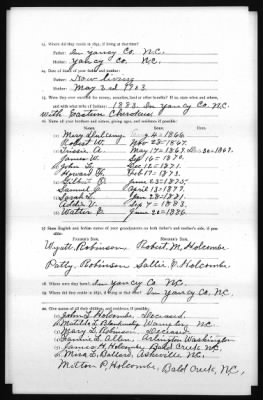 13. Where did they reside in 1851, if living at that time?
Father: In Yancy Co. N.C.
Mother: Yancy Co. N.C.
14. Date of death of your father and mother:
Father: Now living
Mother: May 3rd 1903
15. Were they ever enrolled for annuities, land or other benefits? If so, state when and where,
and with what tribe of Indians: 1883. In Yancy Co. N.C.
With Eastern Cherokees
16. Name all your brothers and sisters, giving ages, and residence if possible:
Name. Born. Died.
(1) Mary 4-1866
(2) Robert W. Nov 23-1867.
(3) A. May 17-1869. 20-1869.
(4) James W. Sep 16-1870.
(5) John L. Dec 12-1871.
(6) Howard Oct 17-1873.
(7) Gilbert June 23-1875.
(8) Samuel J. April 13-1877.
(9) Sarah L. Jan 28-1881.
Adlia V. Sep 4-1883.
Walter June 20-1886.
17. State English and Indian names of your grandparents on both father's and mother's side, if
possible:
Father's Side. Mother's Side.
Wyatt Robinson. Robert M. Holcombe.
Patty Robinson Sallie E. Holcombe.
18. Where were they born? In Yancy Co. N.C.
19. Where did they reside in 1851, if living at that time? In Yancy Co. N.C.
20. Give names of all their children, and residence, if possible:
(1) John L. Holcombe, Deceased.
(2) Matilda L. Blankenship N.C.
(3) Mary L. Robinson, Deceased
(4) L. Allen, Arlington Washington
(5) James H. Holcombe, Bald Creek N.C.
(6) L. Ballard, Asheville N.C.
Milton P. Holcombe, Bald Creek, N.C.